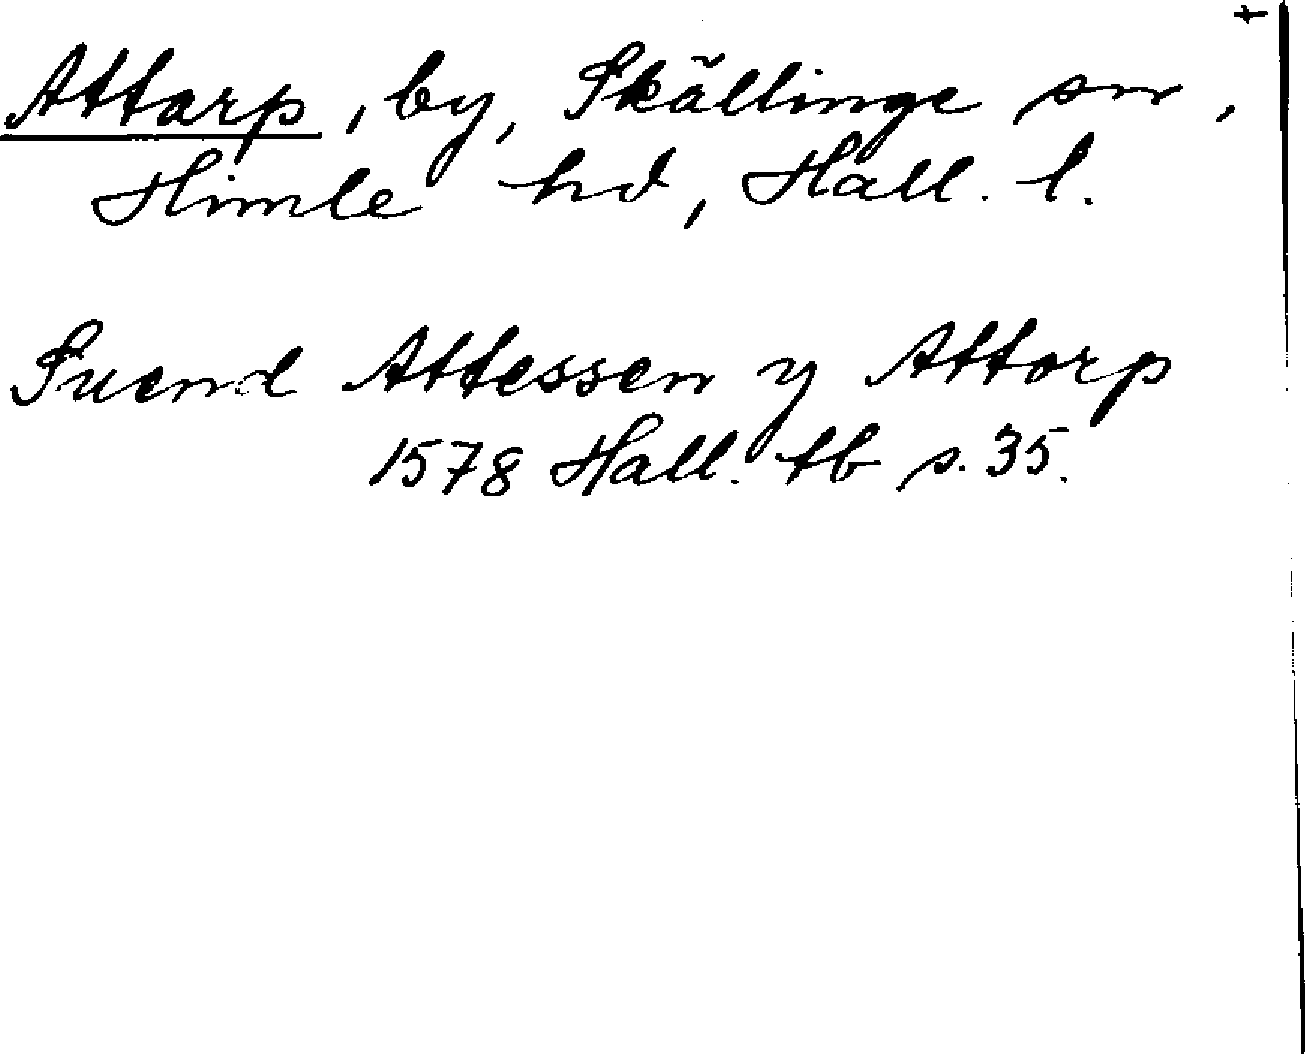 Attarp, by, Skällinge sn,
Himle hd, Hall. l.
Suend Attessen y Attorp
1578 Hall. tb s. 35.